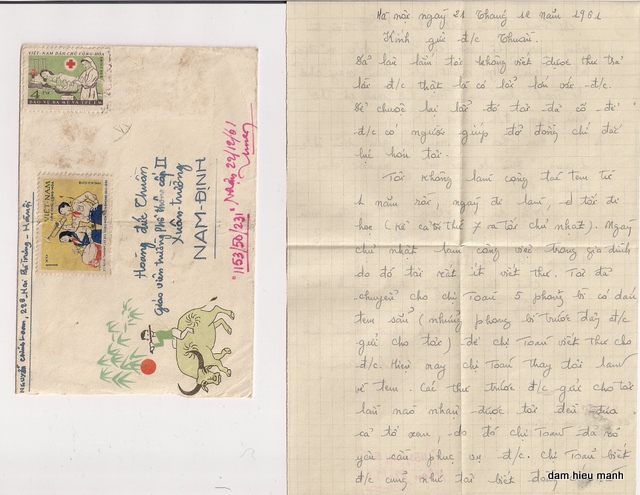 VIỆT-NAM DÂN CHỦ CỘNG HÒA
4 xu
BẢO VỆ BÀ MẸ VÀ TRẺ EM
VIỆT NAM
1
Hoàng đức Thuận
Giáo viên trường Phổ thông cấp II
Xuân-trường
NAM-ĐỊNH
"1153/50/231" Nhận 22/12/61
228 Hai Bà Trưng - Hànội
Hà nội ngày 21 tháng 12 năm 1961
Kính gửi đ/c Thuận.
Đã lâu lắm tôi không viết được thư trả
lời đ/c thật là có lỗi lớn với đ/c.
Để chuộc lại lỗi đó tôi đã cố để
đ/c có người giúp đỡ đồng chí đắc
lực hơn tôi.
Tôi không làm công tác tem từ
1 năm rồi, ngày đi làm, tối đi
học (kể cả tối thứ 7 và Tối chủ nhật). Ngày
chủ nhật làm công việc trong gia đình
do đó tôi rất ít viết thư. Tôi đã
chuyển cho chị Toan 5 phong bì có dán
tem sẵn (những phong bì trước đây đ/c
gửi cho tôi) để chị Toan viết thư cho
đ/c. Hiện nay chị Toan thay tôi làm
về tem. Các thư trước đ/c gửi cho tôi
lần nào nhận được tôi đều đưa
cả tổ xem, do đó chị Toan đã rõ
yêu cầu phục vụ đ/c. Chị Toan biết
đ/c cũng như tôi biết
dam hieu manh